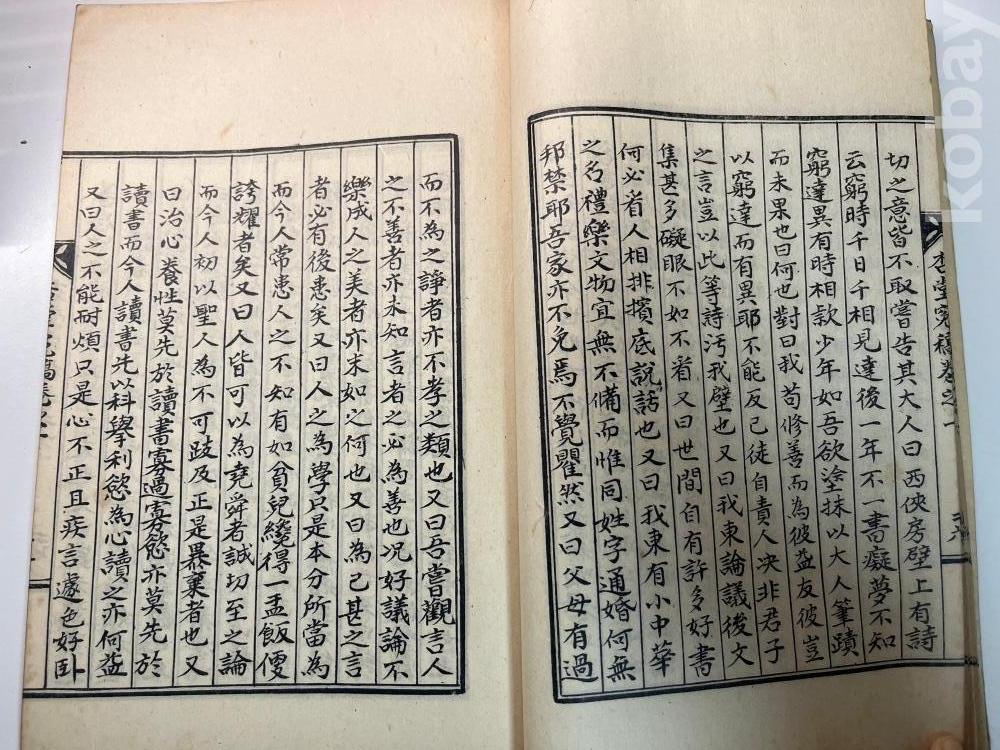 切之意皆不取嘗告其大人曰西俠房壁上有詩
云窮時千日千相見達後一年不一書癡夢不知
窮達異有時相款少年如吾欲塗抹以大人筆蹟
而未果也曰何也對曰我苟修善而為彼益友彼豈
以窮達而有異耶不能反己徒自責人決非君子
之言豈以此等詩汚我壁也又曰我東論議後文
集甚多礙眼不如不看又曰世間自有許多好書
何必看人相排擯底說話也又曰我東有小中華
之名禮樂文物宜無不備而惟同姓字通婚何無
邦禁耶吾家亦不免焉不覺瞿然又曰父母有過
而不為之諍者亦不孝之類也又曰吾嘗觀言人
之不善者亦未知言者之必為善也況好議論不
樂成人之美者亦末如之何也又曰為己甚之言
者必有後患矣又曰人之為學只是本分所當為
而今人常患人之不知有如貧兒纔得一盂飯便
誇耀者矣又曰人皆可以為堯舜者誠切至之論
而今人初以聖人為不可跂及正是暴棄者也又
曰治心養性莫先於讀書寡過寡慾亦莫先於
讀書而今人讀書先以科擧利慾為心讀之亦何益
又曰人之不能耐煩只是心不正且疾言遽色好臥
kobay